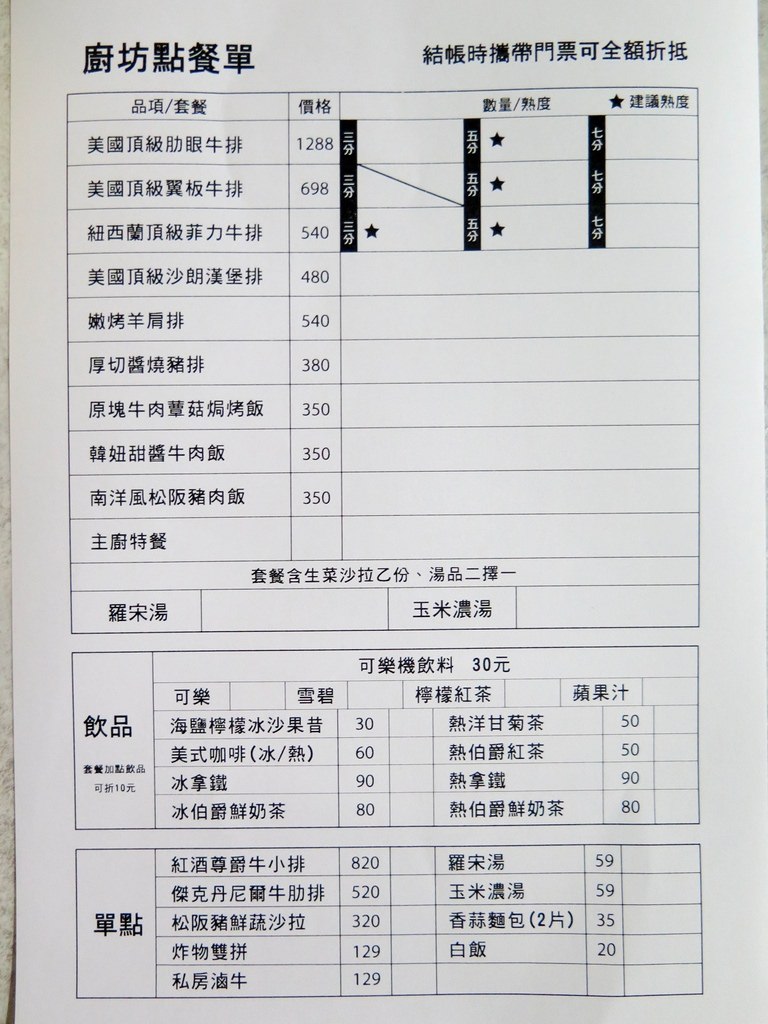 廚坊點餐單 結帳時攜帶門票可全額折抵
品項/套餐 價格 數量/熟度 ★建議熟度
美國頂級肋眼牛排 1288 三分 五分 ★ 七分
美國頂級翼板牛排 698 三分 五分 ★ 七分
紐西蘭頂級菲力牛排 540 三分 ★ 五分 ★ 七分
美國頂級沙朗漢堡排 480
嫩烤羊肩排 540
厚切醬燒豬排 380
原塊牛肉蕈菇焗烤飯 350
韓妞甜醬牛肉飯 350
南洋風松阪豬肉飯 350
主廚特餐
套餐含生菜沙拉乙份、湯品二擇一
羅宋湯 玉米濃湯
飲品
套餐加點飲品
可折10元
可樂機飲料 30元
可樂 雪碧 檸檬紅茶 蘋果汁
海鹽檸檬冰沙果昔 30 熱洋甘菊茶 50
美式咖啡(冰/熱) 60 熱伯爵紅茶 50
冰拿鐵 90 熱拿鐵 90
冰伯爵鮮奶茶 80 熱伯爵鮮奶茶 80
單點
紅酒尊爵牛小排 820 羅宋湯 59
傑克丹尼爾牛肋排 520 玉米濃湯 59
松阪豬鮮蔬沙拉 320 香蒜麵包(2片) 35
炸物雙拼 129 白飯 20
私房滷牛 129